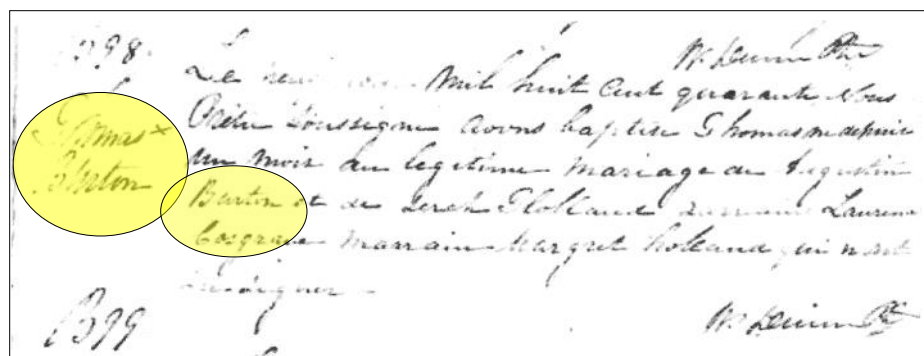 B98.
W. Dunn Ptre
Thomas
Burton
Le neuf mil huit cent quarante Nous
Prêtre Soussigné avons baptisé Thomas né depuis
un mois du legitime mariage de Augustin
Burton et de Serah Holland parrain Laurence
Cosgrave marraine Margret holland qui n'ont
su signer
W. Dunn Ptr
B99